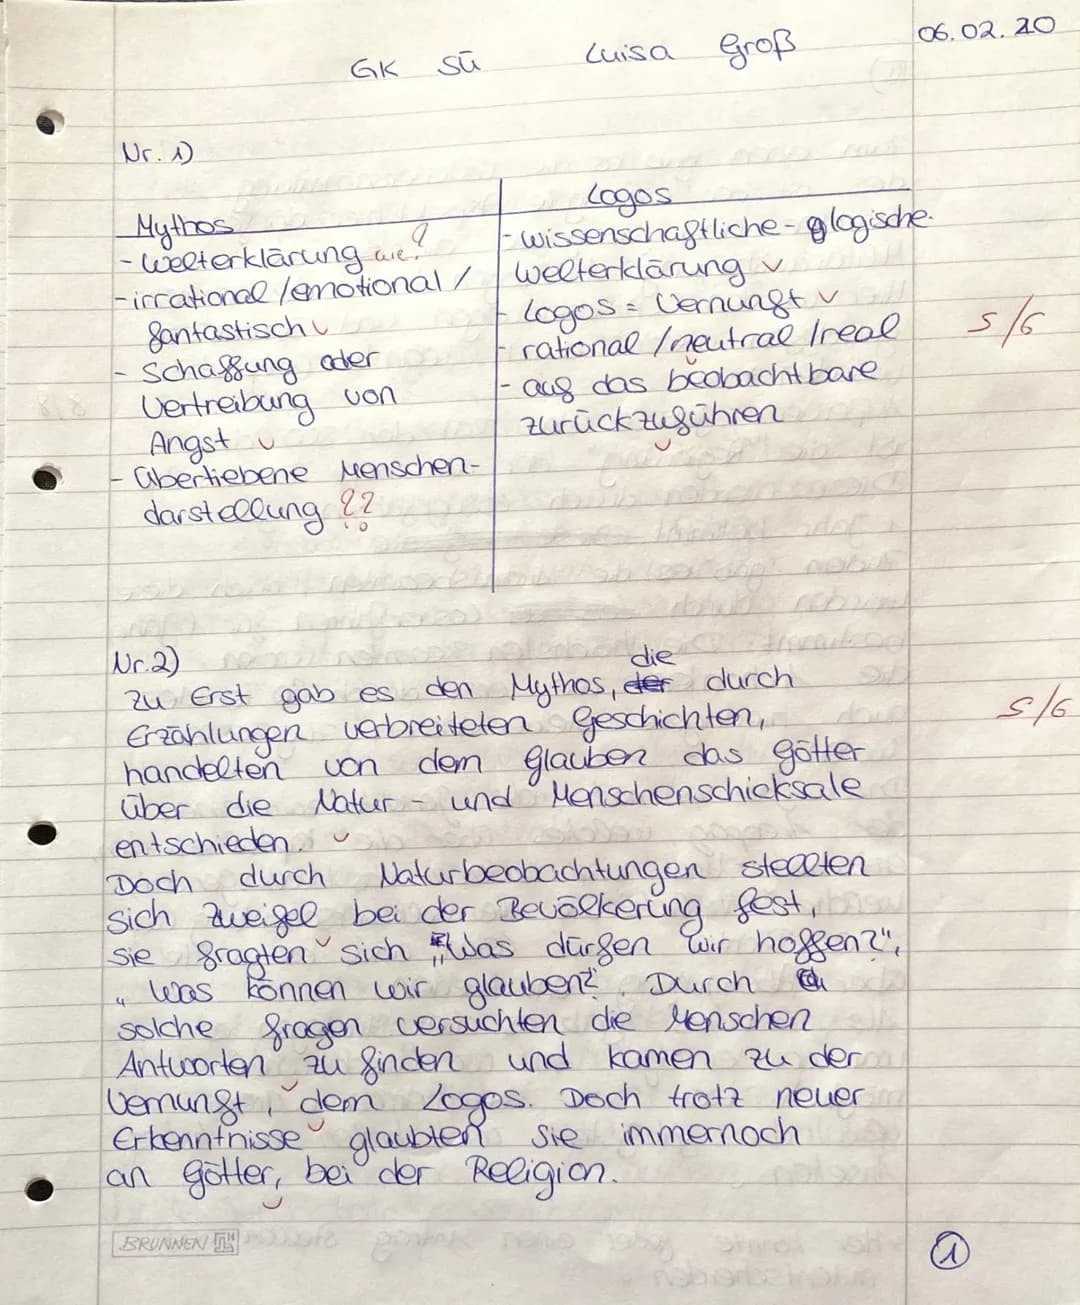 06.02.20
GK SÜ Luisa Groß
Nr. 1)
Mythos
- Welterklärung wie?
- irrational / emotional /
fantastisch
- Schaffung oder
Vertreibung von
Angst
- Übertiebene Menschen-
darstellung ??
Logos
- wissenschaftliche - logische
Welterklärung
- Logos = Vernunft
- rational / neutral / real
- auf das beobachtbare
zurückzuführen
5/6
Nr. 2)
die
Zu Erst gab es den Mythos, der durch
Erzählungen verbreiteten Geschichten,
handelten von dem Glauben das Götter
über die Natur - und Menschenschicksale
entschieden.
Doch durch Naturbeobachtungen stellten
sich Zweifel bei der Bevölkerung fest,
sie fragten sich „Was dürfen wir hoffen?",
„Was können wir glauben?". Durch
solche Fragen versuchten die Menschen
Antworten zu finden und kamen zu der
Vernunft, dem Logos. Doch trotz neuer
Erkenntnisse glaubten sie immernoch
an Götter, bei der Religion.
5/6
BRUNNEN
1